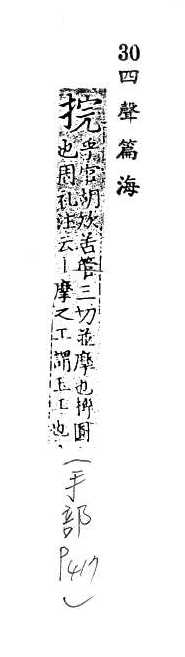 30 四聲篇海
捖
乎官胡苦管三切並摩也摶圓
也周礼注云丨摩之工謂玉工也
(手部
P417)